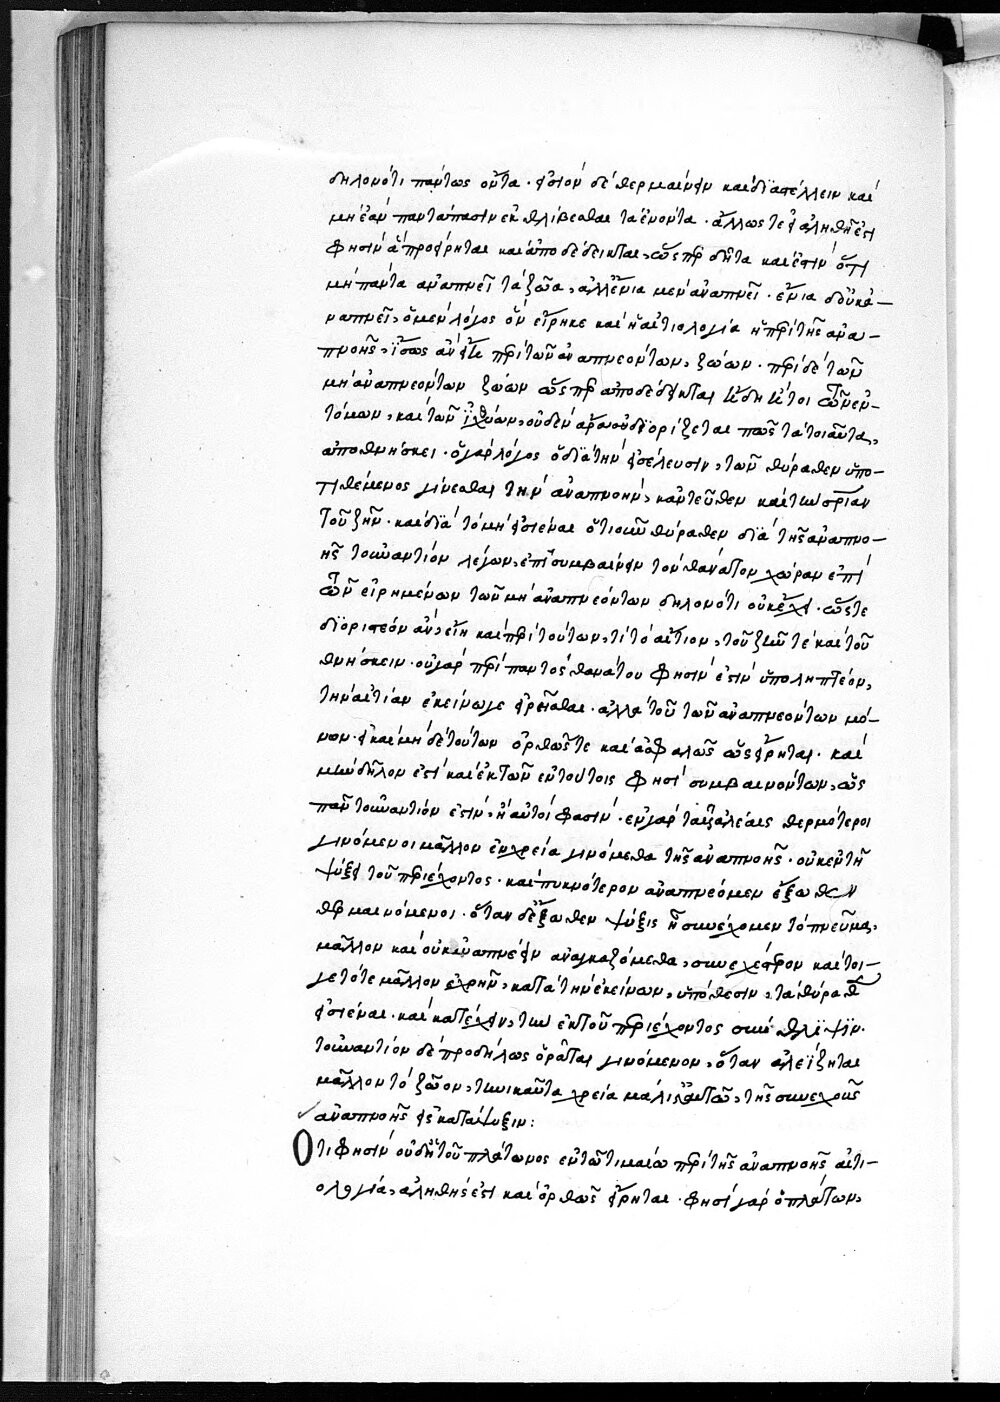 δηλονότι πάντως ὄντα· εἰσιὸν δὲ θερμαίνειν καὶ διαστέλλειν καὶ
μὴ ἐᾶν παντάπασιν ἐκθλίβεσθαι τὰ ἐνόντα. ἄλλως τε εἰ ἀληθῆ ἐστι
φησὶν ἃ προείρηται καὶ ἀποδέδεικται, ὥσπερ δῆτα καὶ ἔστιν ὅτι
μὴ πάντα ἀναπνεῖ τὰ ζῶα, ἀλλ' ἔνια μὲν ἀναπνεῖ· ἔνια δ' οὐκ ἀ-
ναπνεῖ, ὁ μὲν λόγος ὃν εἴρηκε καὶ ἡ αἰτιολογία ἡ περὶ τῆς ἀνα-
πνοῆς, ἴσως ἂν εἴη περὶ τῶν ἀναπνεόντων, ζώων· περὶ δὲ τῶν
μὴ ἀναπνεόντων ζώων ὥσπερ ἀποδέδεικται τῶν ἐν-
τόμων, καὶ τῶν ἰχθύων, οὐδὲν ἄρα οὐ διορίζεται πῶς τὰ τοιαῦτα,
ἀποθνήσκει· ὁ γὰρ λόγος ὁ διὰ τὴν εἰσέλευσιν, τῶν θύραθεν ὑπο-
τιθέμενος γίνεσθαι τὴν ἀναπνοήν, κἀντεῦθεν καὶ τὴν σρίαν
τοῦ ζῆν· καὶ διὰ τὸ μὴ εἰσιέναι ὁτιοῦν θύραθεν διὰ τῆς ἀναπνο-
ῆς τοὐναντίον λέγων, ἔτι συμβαίνειν τὸν θάνατον χώραν ἐπὶ
τῶν εἰρημένων τῶν μὴ ἀναπνεόντων δηλονότι οὐκ ἔχει· ὥστε
διοριστέον ἂν, εἴη καὶ περὶ τούτων, τί τὸ αἴτιον, τοῦ ζῆν τε καὶ τοῦ
θνήσκειν· οὐ γὰρ περὶ παντὸς θανάτου φησὶν ἐστὶν ὑποληπτέον,
τὴν αἰτίαν ἐκείνων γε εἰρῆσθαι· ἀλλὰ τοῦ τῶν ἀναπνεόντων μό-
νον· εἰ καὶ μηδὲ τούτων ὀρθῶς τε καὶ ἀσφαλῶς ὡς εἴρηται. καὶ
μὴν δῆλον ἐστὶ καὶ ἐκ τῶν ἐν τούτοις φησὶ συμβαινόντων, ὡς
πᾶν τοὐναντίον ἐστὶν, ἢ αὐτοί φασιν· ἐν γὰρ ταῖς ἀλέαις θερμότεροι
γινόμενοι μᾶλλον ἐν χρεία γινόμεθα τῆς ἀναπνοῆς· οὐκ ἐν τῇ
ψύξει τοῦ περιέχοντος· καὶ πυκνότερον ἀναπνέομεν ἔξωθεν
θερμαινόμενοι· ὅταν δ' ἔξωθεν ψύξις ᾖ συνέχομεν τὸ πνεῦμα,
μᾶλλον καὶ οὐκ ἀναπνέειν ἀναγκαζόμεθα, συνεχέστερον καίτοι-
γε τότε μᾶλλον ἐχρῆν, κατὰ τὴν ἐκείνων, ὑπόθεσιν, τὰ θύραθεν
εἰσιέναι· καὶ κατέχειν, τὴν ἐκ τοῦ περιέχοντος σύνθλιψιν.
τοὐναντίον δὲ προδήλως ὁρᾶται γινόμενον, ὅταν ἀλεΐζηται
μᾶλλον τὸ ζῶον, τηνικαῦτα χρεία μάλιστα αὐτῶ, τῆς συνεχοῦς
ἀναπνοῆς εἰς κατάψυξιν:
Ὅτι φησὶν οὐδὲ τοῦ πλάτωνος ἐν τῶ τιμαίω περὶ τῆς ἀναπνοῆς αἰτι-
ολογία, ἀληθής ἐστι καὶ ὀρθῶς εἴρηται. φησὶ γὰρ ὁ πλάτων,